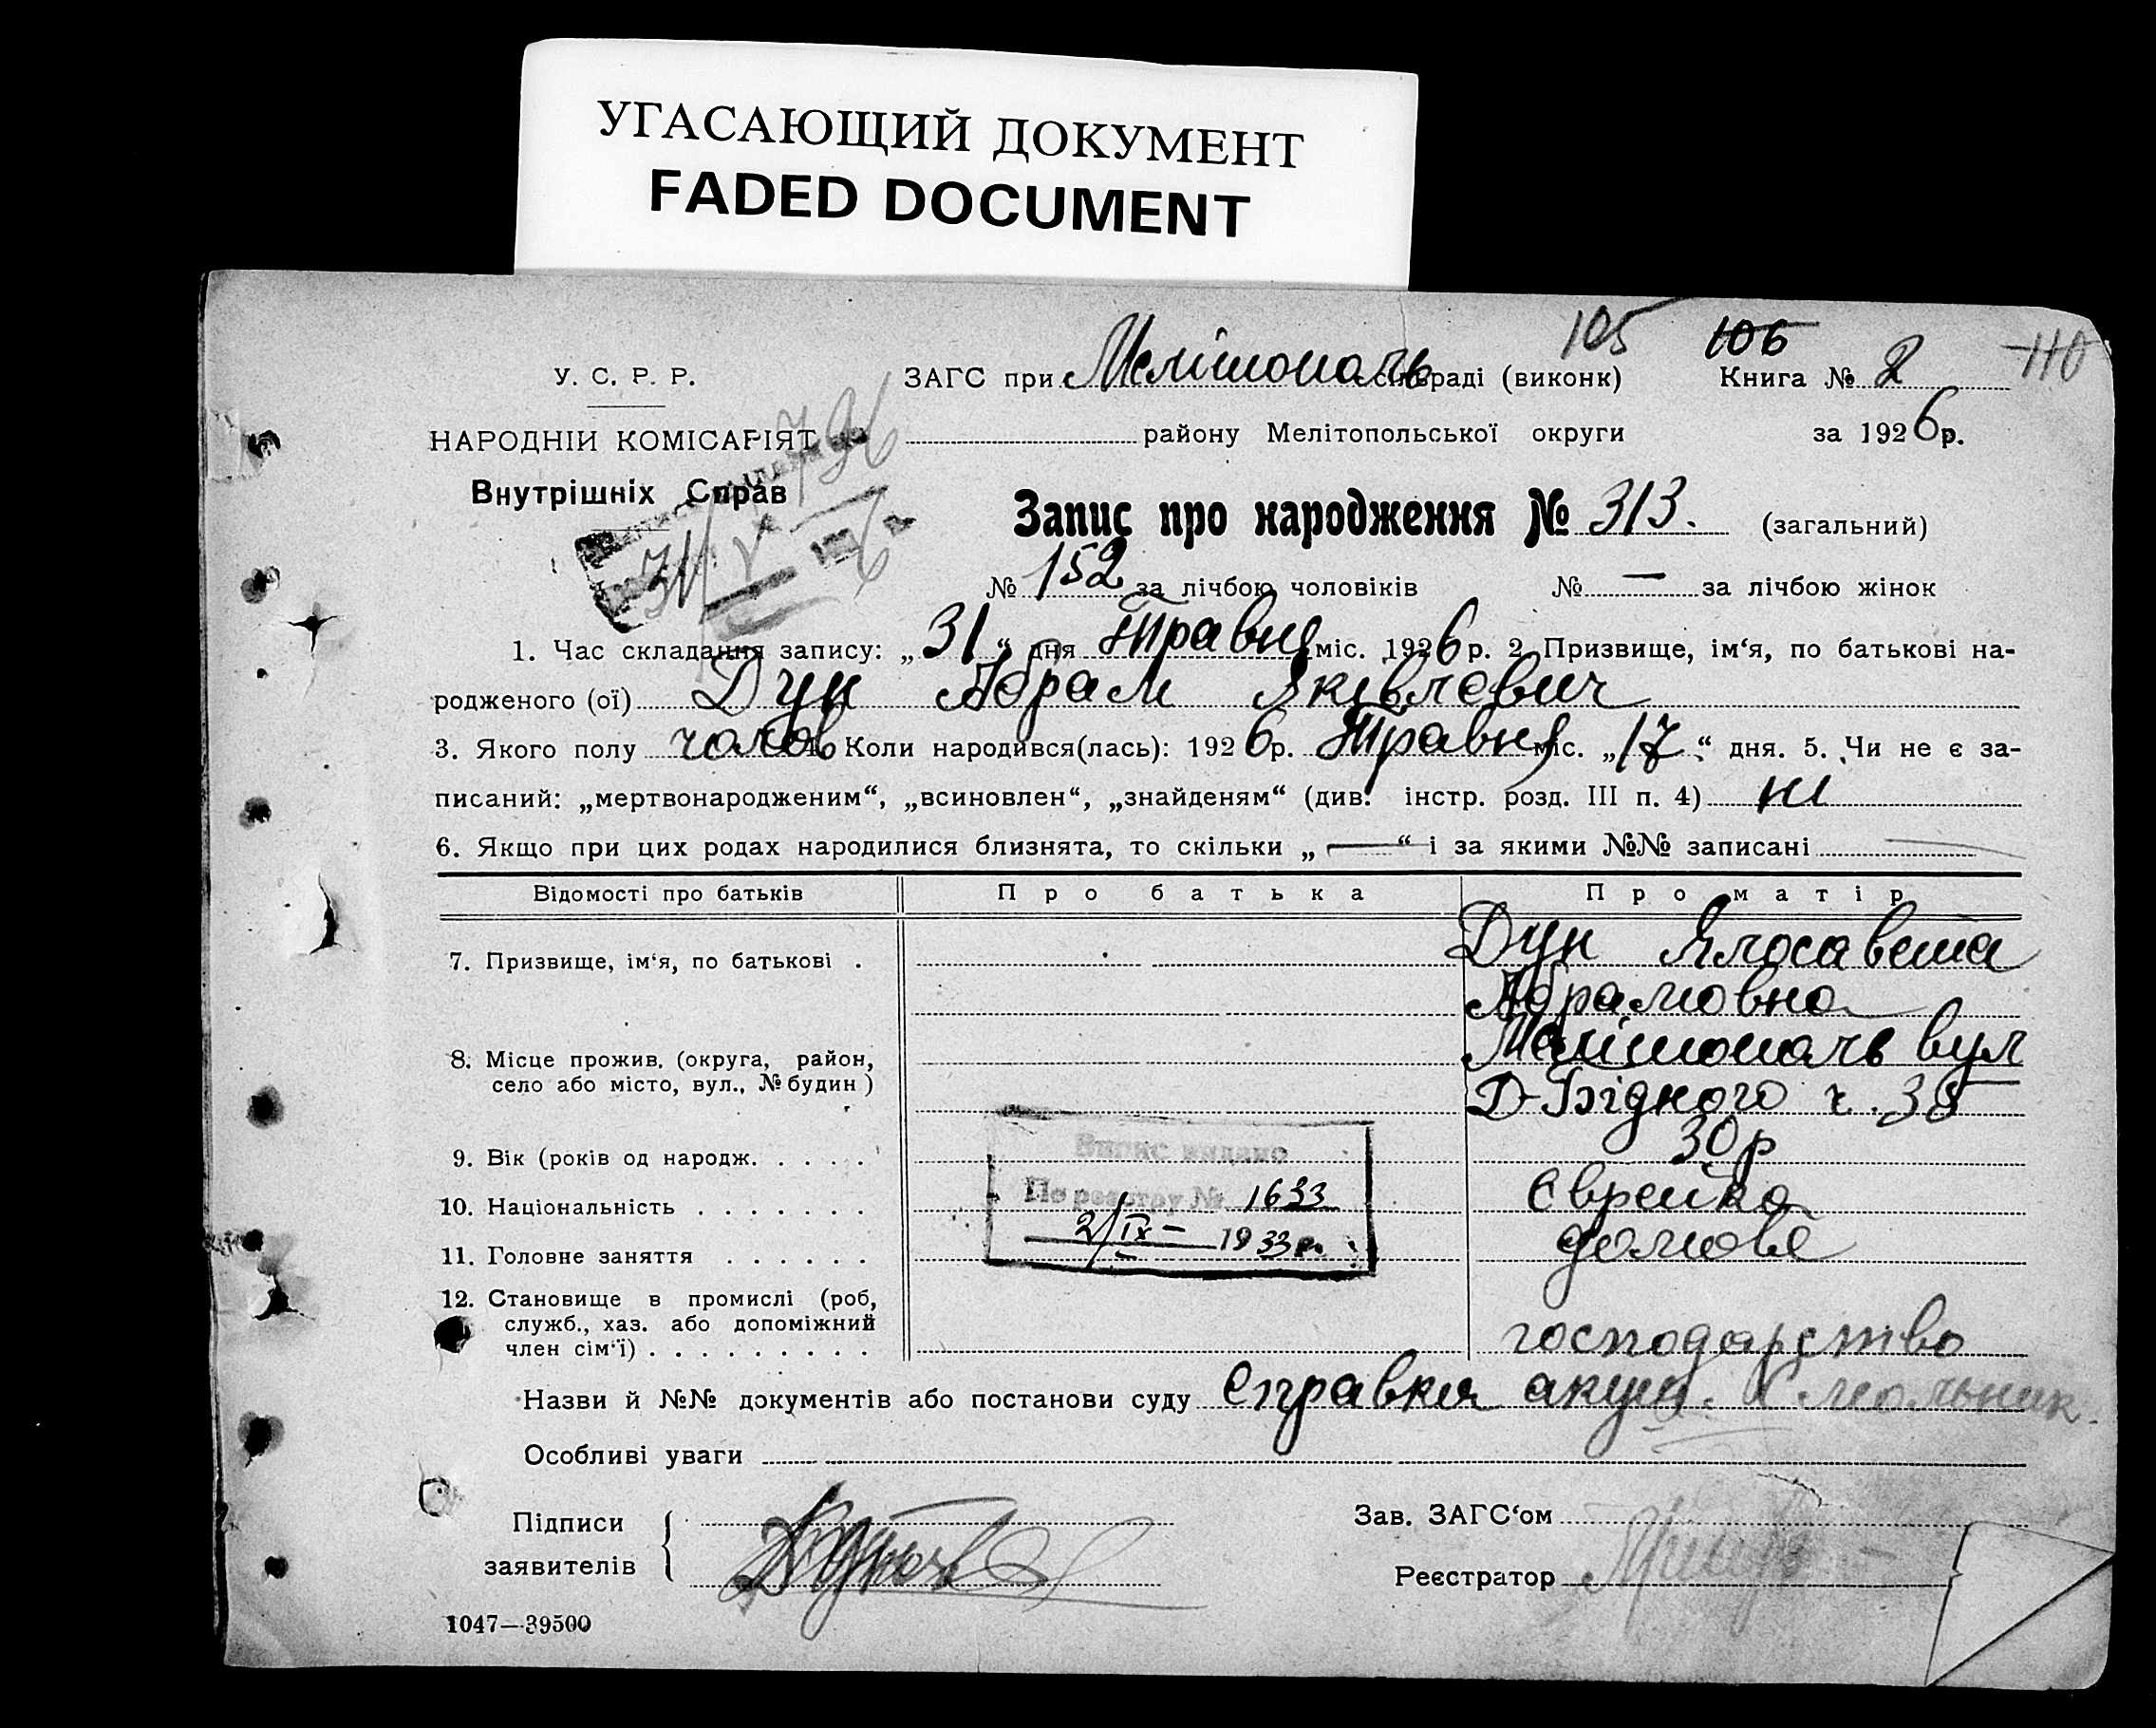 УГАСАЮЩИЙ ДОКУМЕНТ
FADED DOCUMENT
105 106 110
У. С. Р. Р.
ЗАГС при Мелітополь сільраді (виконк) Книга № 2
НАРОДНІЙ КОМІСАРІЯТ
району Мелітопольської округи за 1926 р.
Внутрішніх Справ
796
31/V 6
Запис про народження № 313. (загальний)
№ 152 за лічбою чоловіків № — за лічбою жінок
1. Час складання запису: „31“ дня Травня міс. 1926 р. 2. Призвище, ім‘я, по батькові на-
родженого (ої) Дун Абрам Яківлевич
3. Якого полу чолов 4. Коли народився(лась): 1926 р. Травня міс. „17“ дня. 5. Чи не є за-
писаний: „мертвонародженим“, „всиновлен“, „знайденям“ (див. інстр. розд. III п. 4) ні
6. Якщо при цих родах народилися близнята, то скільки „—“ і за якими №№ записані —
Відомості про батьків Про батька Про матір
7. Призвище, ім‘я, по батькові . Дун Ялосавета
Абрамовна
8. Місце прожив. (округа, район, Мелітополь вул
село або місто, вул., № будин) Д-Бідного ч. 38
9. Вік (років од народж. . . . . 30 р
10. Національність . . . . . . . Єврейка
11. Головне заняття . . . . . . домове
12. Становище в промислі (роб,
служб., хаз. або допоміжний
член сім‘ї) . . . . . . . . . господарство
Випис видано
По реєстру № 1633
2/IX — 1933 р.
Назви й №№ документів або постанови суду Справка акуш.
Особливі уваги
Підписи
заявителів
Зав. ЗАГС‘ом
Реєстратор
1047—39500